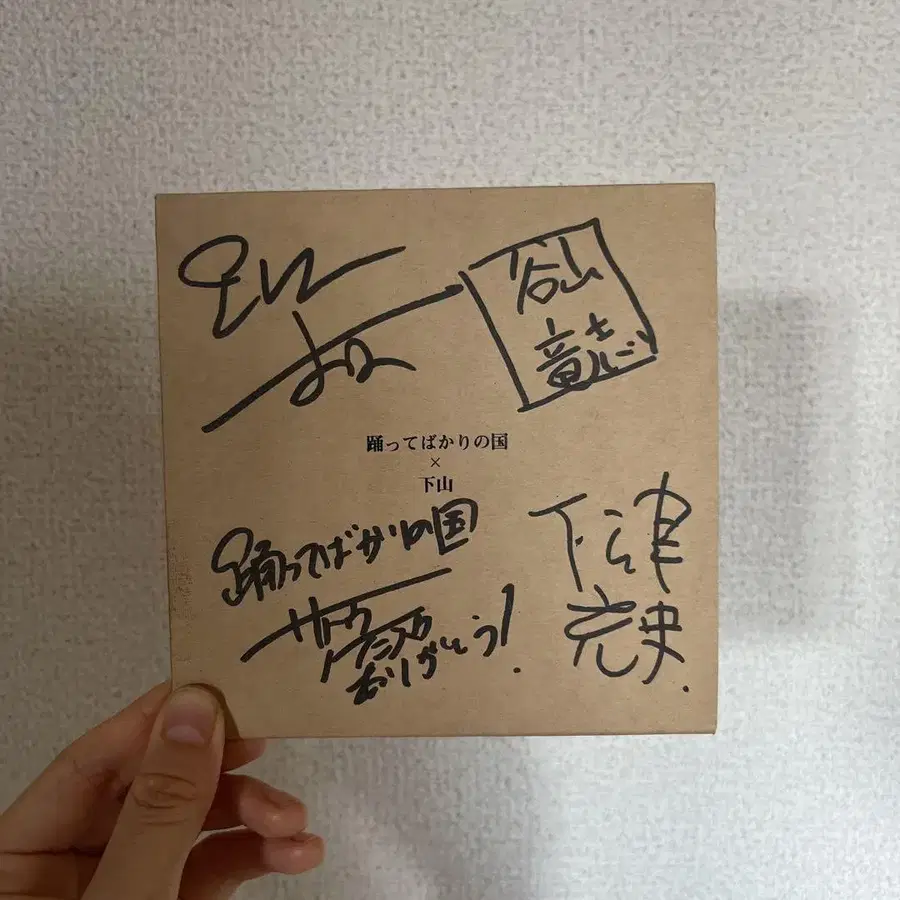 谷山
竜志
踊ってばかりの国
×
下山
踊ってばかりの国
サトウ
ありがとう!
下津
光史.